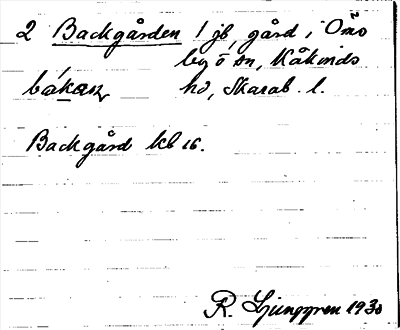 2 Backgården 1 jb, gård i Omö
by o sn, Kåkinds
hd, Skarab. l.
Backgård kb 16.
R. Ljunggren 1930